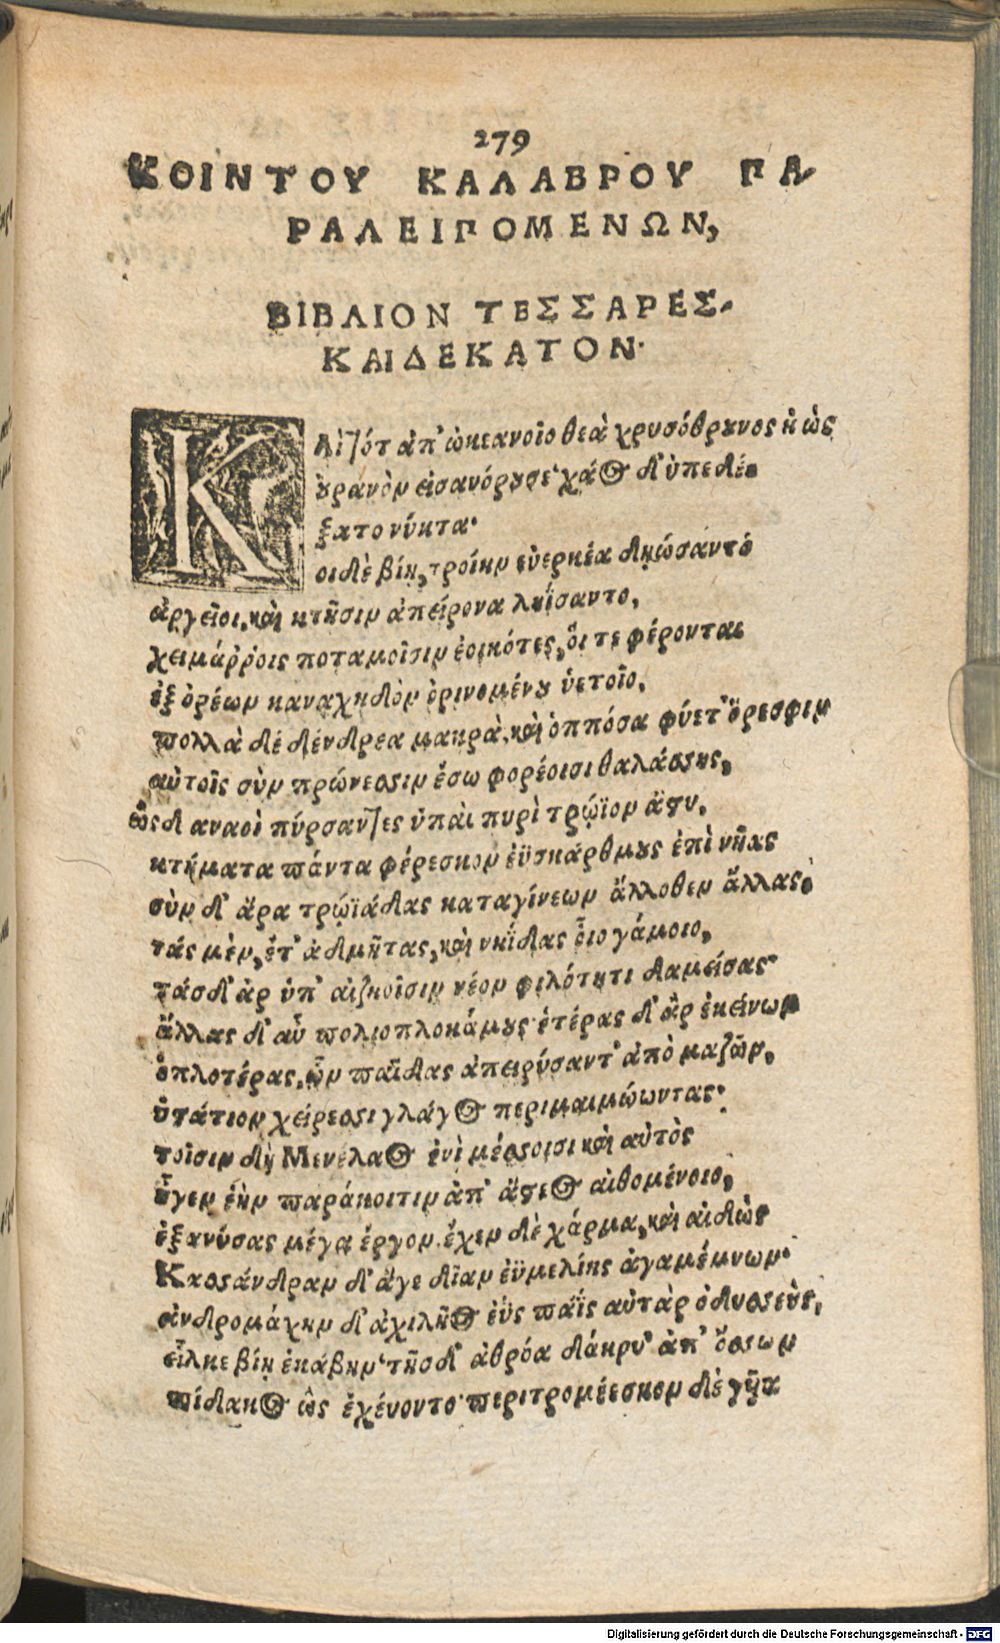 279
ΚΟΙΝΤΟΥ ΚΑΛΑΒΡΟΥ ΠΑ-
ΡΑΛΕΙΠΟΜΕΝΩΝ,
ΒΙΒΛΙΟΝ ΤΕΣΣΑΡΕΣ-
ΚΑΙΔΕΚΑΤΟΝ·
ΚΑὶ τότ' ἀπ' ὠκεανοῖο θεὰ χρυσόθρουνος ἠὼς
οὐρανὸν εἰσανόρουσε· χάος δ' ὑπεδέ-
ξατο νύκτα·
οι δὲ βίῃ, τροίην εὐερκέα δῃώσαντο
ἀργεῖοι, καὶ κτῆσιν ἀπείρονα ληΐσαντο,
χειμάῤῥοις ποταμοῖσιν ἐοικότες, οἵ τε φέρονται
ἐξ ὀρέων καναχηδὸν ὀρινομένου ὑετοῖο,
πολλὰ δέ δένδρεα μακρὰ, καὶ ὁππόσα φύετ' ὄρεσφιν
αὐτοῖς σὺν πρώνεσσιν ἔσω φορέοισι θαλάσσης,
ὣς δαναοὶ πύρσαντες ὑπαὶ πυρὶ τρώϊον ἄστυ,
κτήματα πάντα φέρεσκον ἐϋσκάρθμους ἐπὶ νῆας
σὺν δ' ἄρα τρώϊάδας καταγίνεων ἄλλοθεν ἄλλας·
τάς μὲν, ἔτ' ἀδμῆτας, καὶ νηΐδας οἷο γάμοιο,
τάς δ' ἀρ ὑπ' αἰζηοῖσιν νέον φιλότητι δαμείσας·
ἄλλας δ' αὖ πολιοπλοκάμους· ἑτέρας δ' ἂρ ἐκείνων
ὁπλοτέρας, ὧν παῖδας ἀπειρύσαντ' ἀπὸ μαζῶν,
ὑστάτιον χείρεσσι γλάγος περιμαιμώωντας·
τοῖσιν δὴ Μενέλαος ἐνὶ μέσσοισι καὶ αὐτὸς
ἦγεν ἑὴν παράκοιτιν ἀπ' ἄστεος αἰθομένοιο,
ἐξανύσας μέγα ἔργον. ἔχεν δὲ χάρμα, καὶ αἰδὼς
Κασσάνδραν δ' ἄγε δῖαν ἐϋμελίης ἀγαμέμνων·
ἀνδρομάχην δ' ἀχιλῆος ἐῢς παΐς αὐτὰρ ὀδυσσεὺς,
εἷλκε βίῃ ἑκάβην· τῆς δ' ἀθρόα δάκρυ' ἀπ' ὄσσων
πίδακος ὣς ἐχέυοντο· περιτρομέεσκον δὲ γῆα